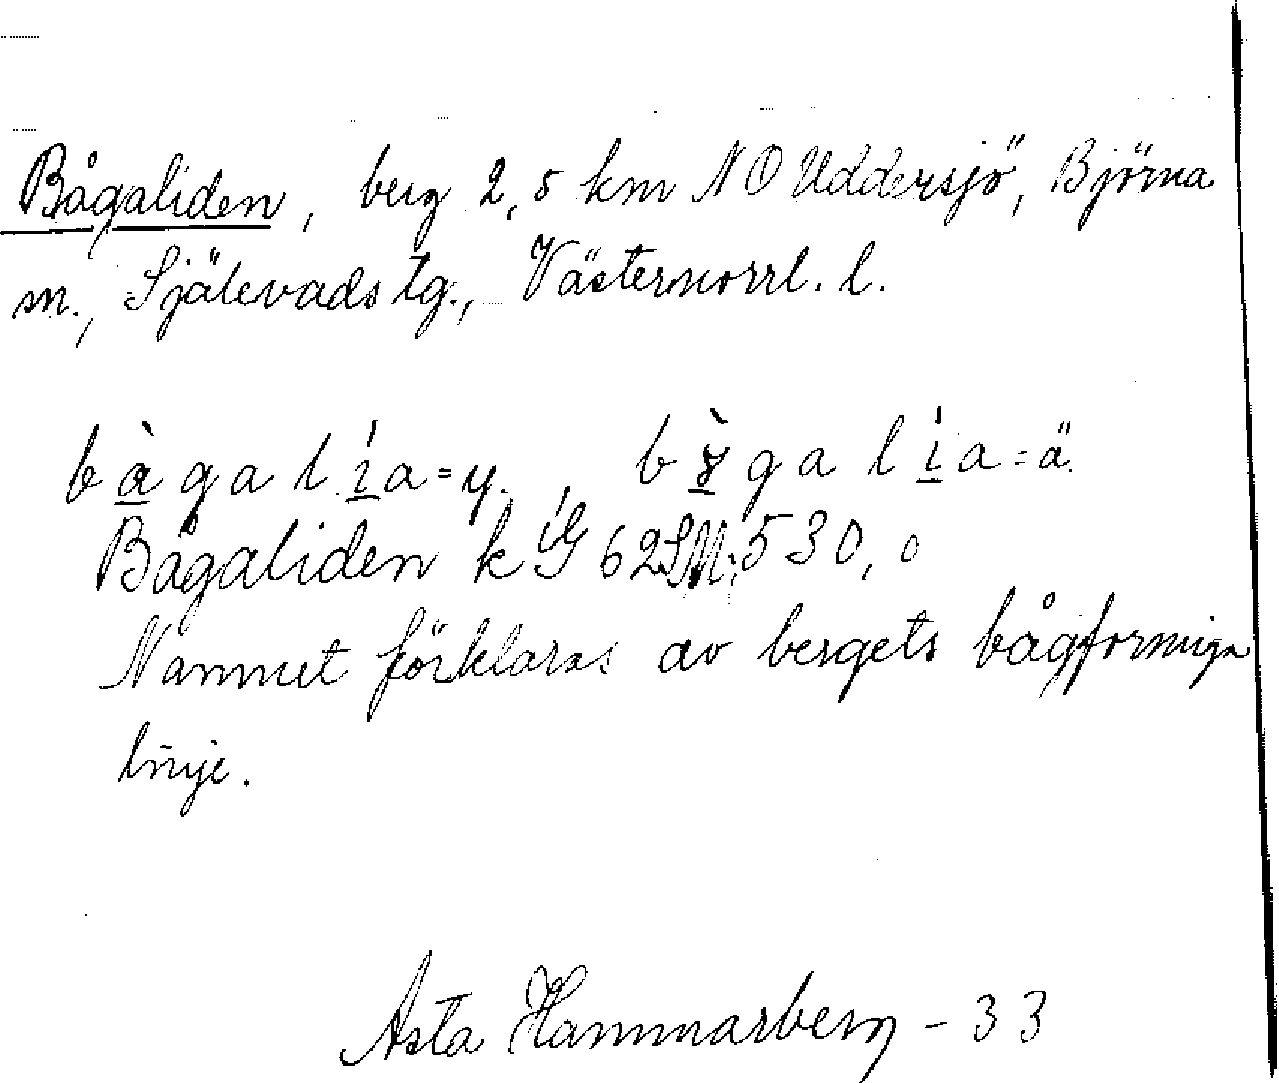 Bågaliden, berg 2,5 km NO Uddersjö, Björna
sn., Själevads tg., Västernorrl. l.
bàga lía=y. bɤ̀ga lía=ä.
Bågaliden k 62 SM; 530,0
Namnet förklaras av bergets bågformiga
linje.
Asta Hammarberg - 33